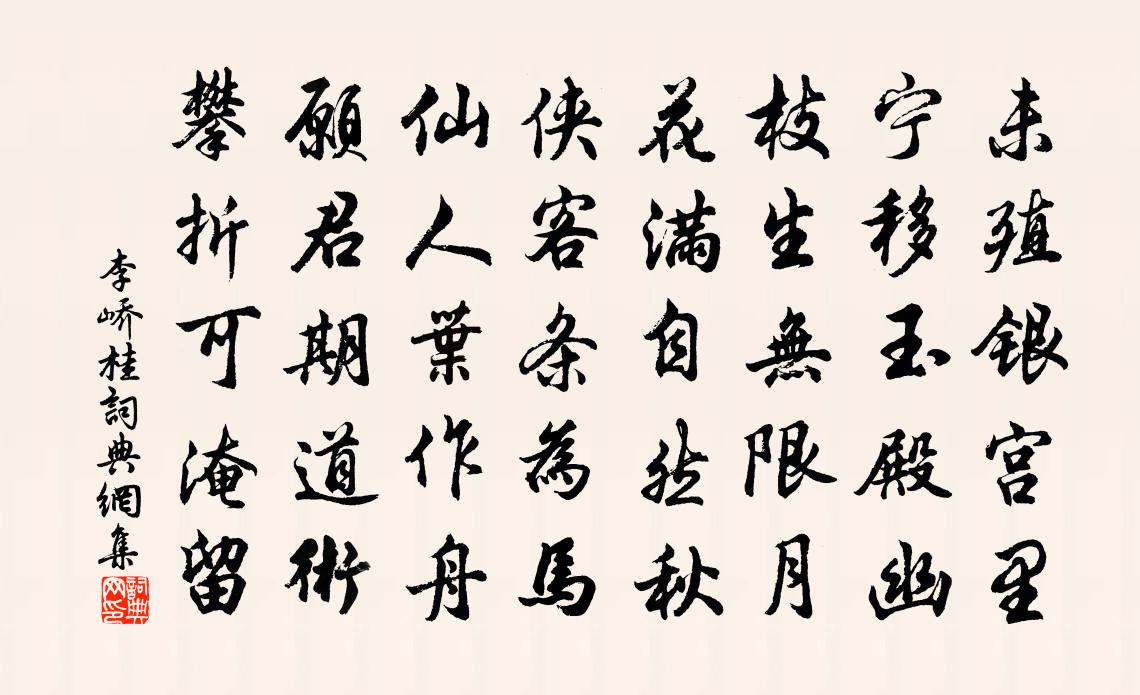 未殖银宫里
宁移玉殿幽
枝生無限月
花满自然秋
侠客条為馬
仙人葉作舟
願君期道術
攀折可淹留
李嶠桂詞典網集
詞典
网印